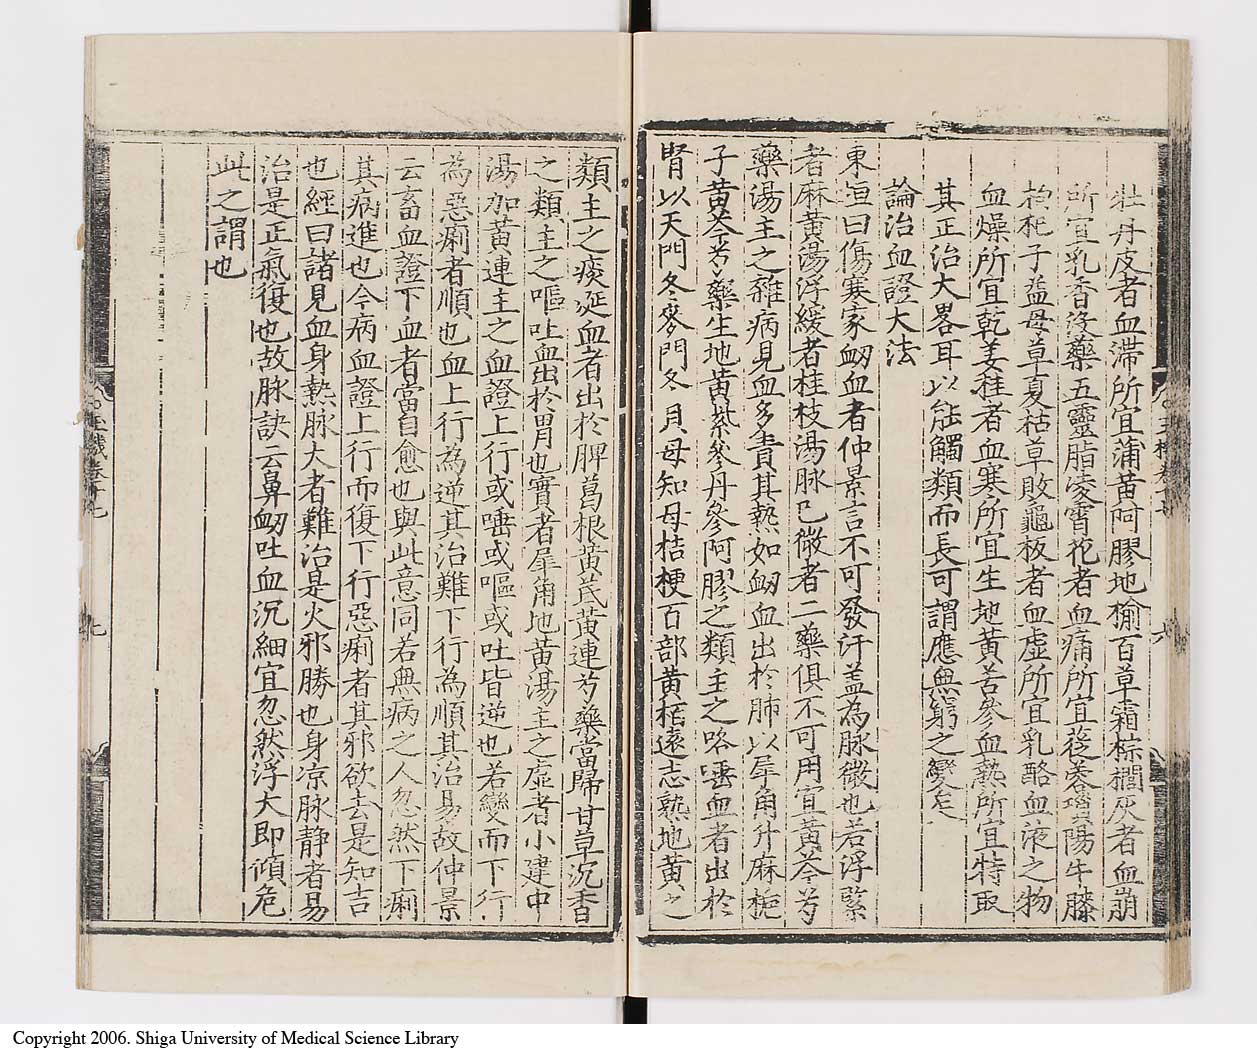 牡丹皮者血滯所宜蒲黃阿膠地榆百草霜棕櫚灰者血崩
所宜乳香沒藥五靈脂凌霄花者血痛所宜蓯蓉瑣陽牛膝
枸杞子益母草夏枯草敗龜板者血虛所宜乳酪血液之物
血燥所宜乾姜桂者血寒所宜生地黃苦參血熱所宜特取
其正治大畧耳以能觸類而長可謂應無窮之變矣
論治血證大法
東垣曰傷寒家衂血者仲景言不可發汗盖為脉微也若浮緊
者麻黃湯浮緩者桂枝湯脉已微者二藥俱不可用宜黃芩芍
藥湯主之雜病見血多責其熱如衂血出於肺以犀角升麻梔
子黃芩芍藥生地黃紫參丹參阿膠之類主之咯唾血者出於
腎以天門冬麥門冬貝母知母桔梗百部黃栢遠志熟地黃之
類主之痰涎血者出於脾葛根黃芪黃連芍藥當歸甘草沉香
之類主之嘔吐血出於胃也實者犀角地黃湯主之虛者小建中
湯加黃連主之血證上行或唾或嘔或吐皆逆也若變而下行
為惡痢者順也血上行為逆其治難下行為順其治易故仲景
云畜血證下血者當自愈也與此意同若無病之人忽然下痢
其病進也今病血證上行而復下行惡痢者其邪欲去是知吉
也經曰諸見血身熱脉大者難治是火邪勝也身凉脉静者易
治是正氣復也故脉訣云鼻衂吐血沉細宜忽然浮大即傾危
此之謂也
七
Copyright 2006. Shiga University of Medical Science Library